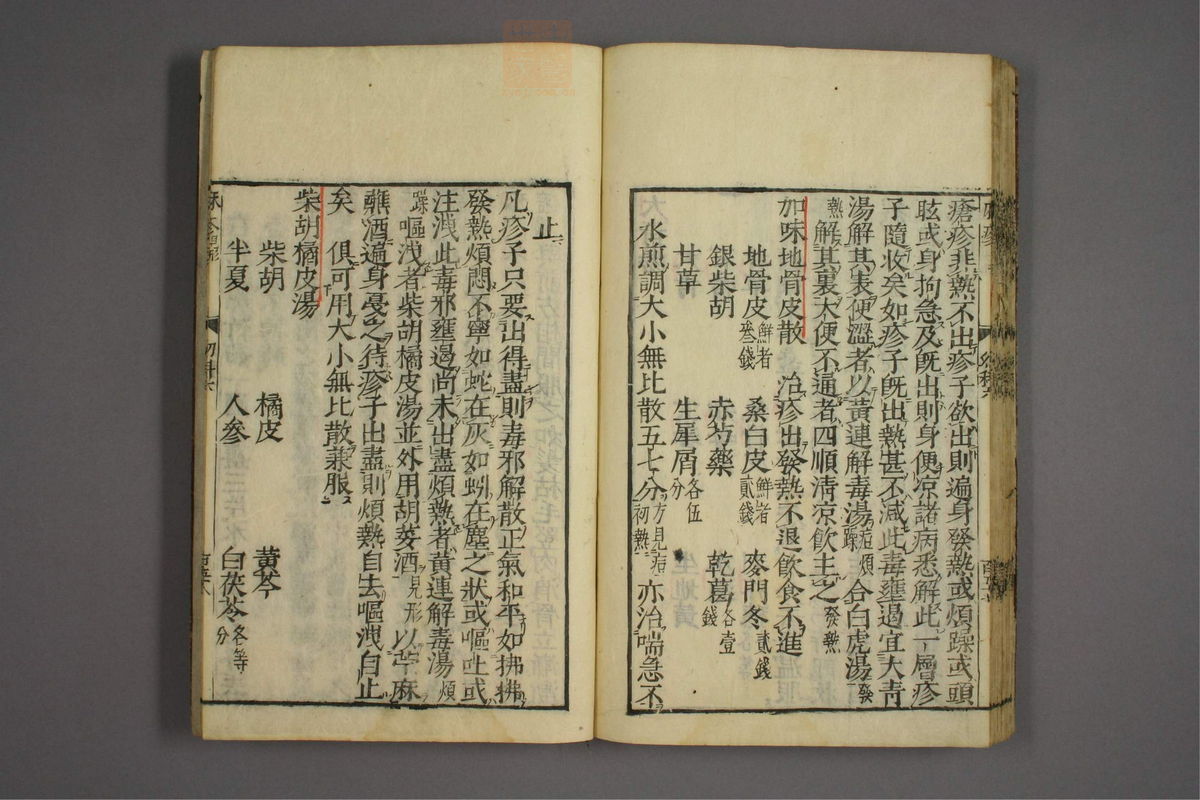 瘡疹非熱不出疹子欲出則遍身發熱或煩躁或頭
眩或身拘急及既出則身便凉諸病悉解此一層疹
子隨收矣如疹子既出熱甚不減此毒壅遏宜大青
湯解其表便澀者以黃連解毒湯痘煩躁合白虎湯發
熱解其裏大便不通者四順清凉飲主之發熱
加味地骨皮散　治疹出發熱不退飲食不進
地骨皮鮮者叁錢　桑白皮鮮者貳錢　麥門冬貳錢
銀柴胡　赤芍藥　乾葛各壹錢
甘草　生犀屑各伍分
水煎調大小無比散五七分方見痘初熱亦治喘急不
止
凡疹子只要出得盡則毒邪解散正氣和平如拂拂
發熱煩悶不寧如蛇在灰如蚓在塵之狀或嘔吐或
注洩此毒邪壅遏尚未出盡煩熱者黃連解毒湯煩
躁嘔洩者柴胡橘皮湯並外用胡荽酒見形以苧麻
蘸酒遍身戞之待疹子出盡則煩熱自去嘔洩自止
矣　俱可用大小無比散兼服
柴胡橘皮湯
柴胡　橘皮　黃芩
半夏　人參　白茯苓各等分